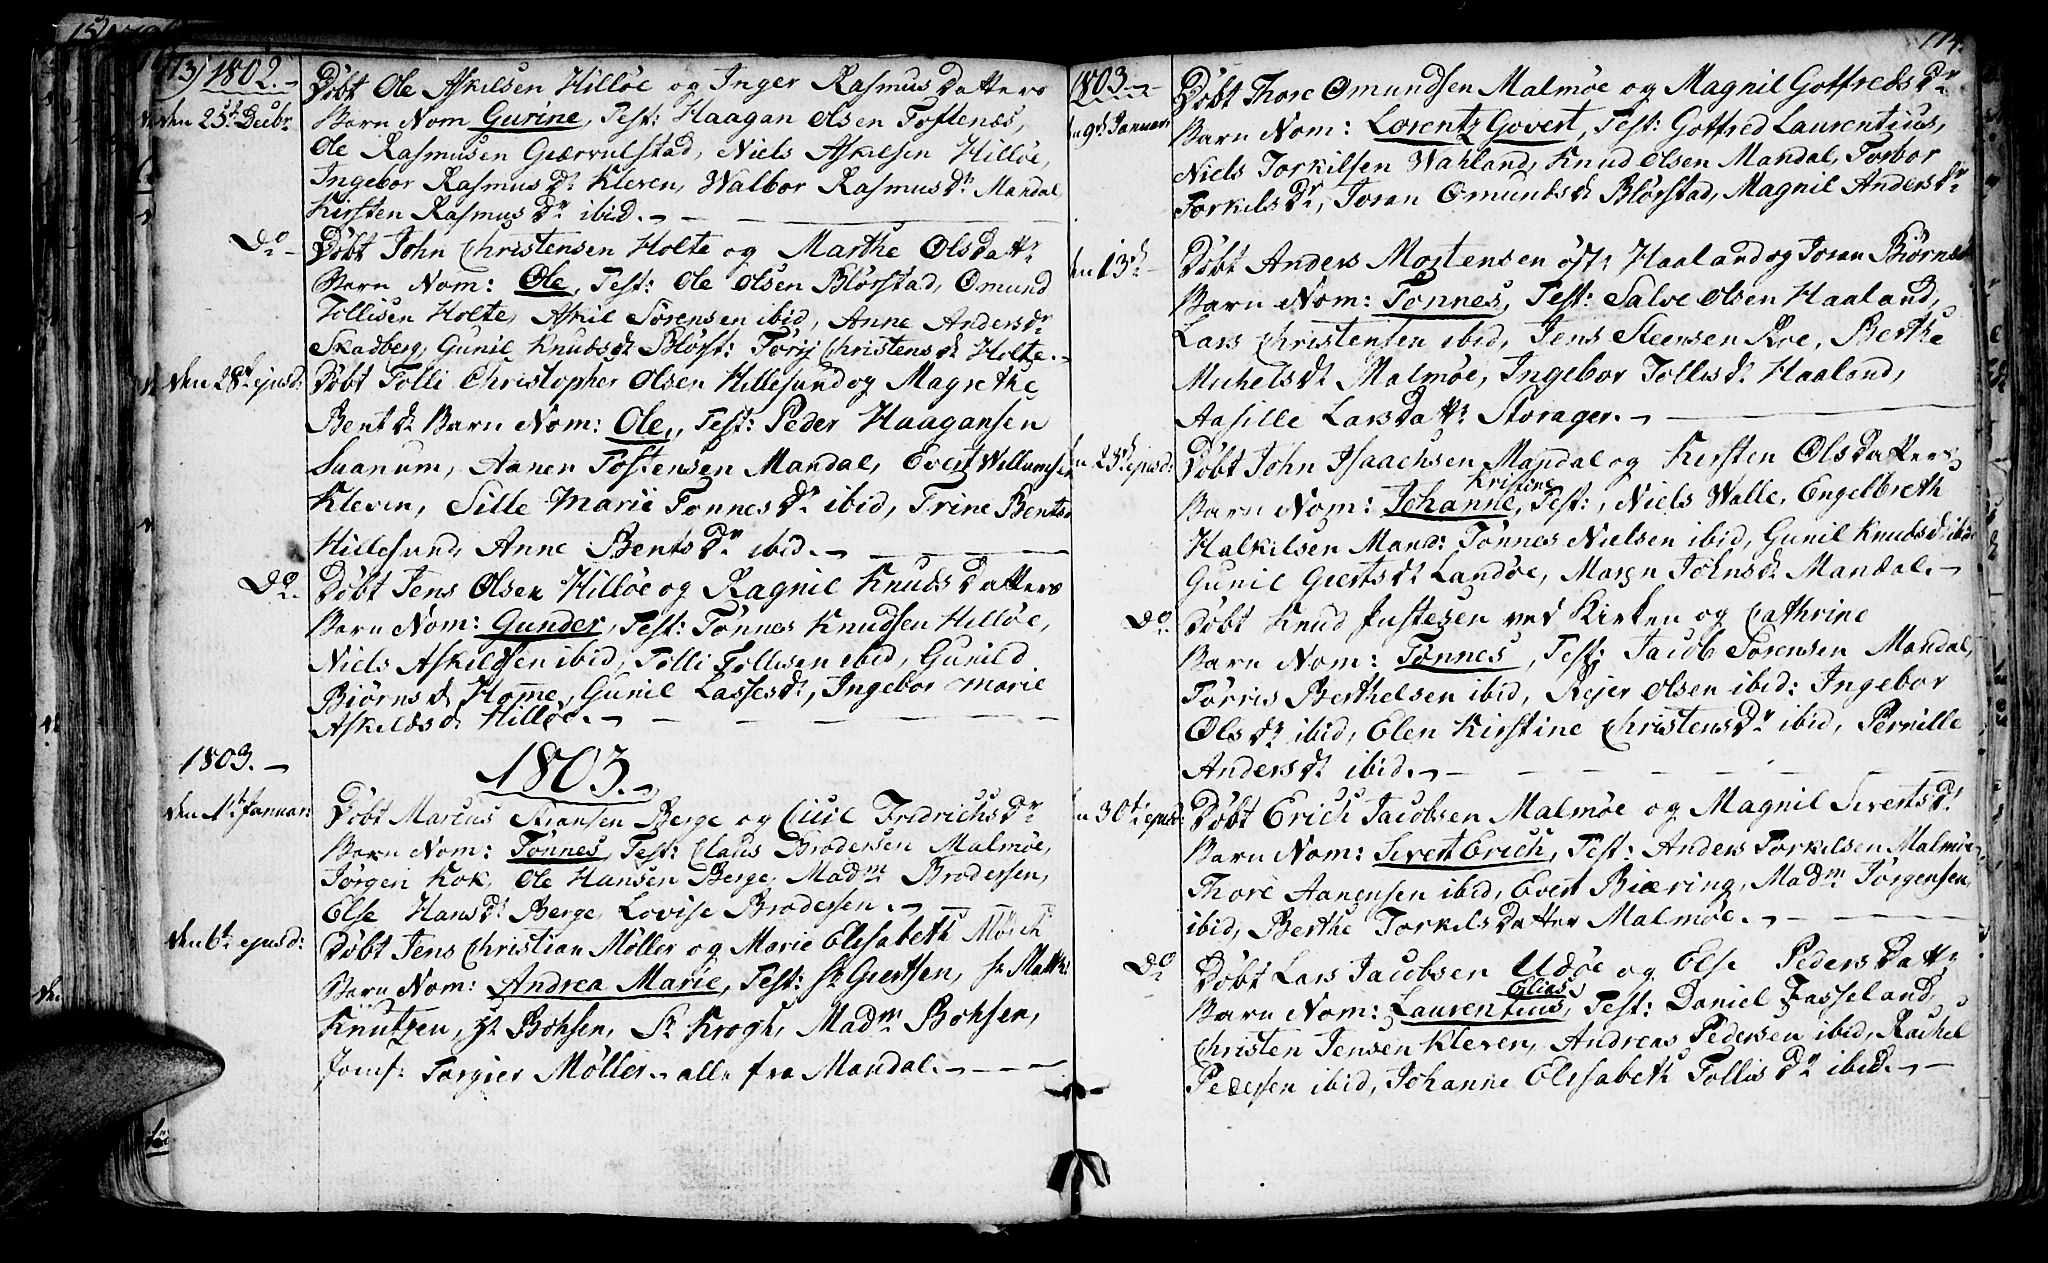 113) 1802.-
den 25de Decbr
Døbt Ole Askelsen Hilløe og Inger RasmusDatters
Barn Nom Gurine, Test: Haagan Olsen Toftenæs,
Ole Rasmusen Giærvulstad, Niels Askelsen Hilløe,
Ingebor Rasmusdr Kleven, Walbor Rasmusdr Mandal,
Kirsten Rasmusdr ibid.-
Do -
Døbt John Christensen Holte og Marthe OlsDattr
Barn Nom: Ole, Test: Ole Olsen Blørstad, Omund
Tollisen Holte, Askil Sørensen ibid, Anne Andersdr
Skadberg, Gunil Knudsdr Blørst: Torij Christensdr Holte.-
den 28de ejusd:
Døbt Tolli Christopher Olsen Hillesund og Magrethe
Bentdr Barn Nom: Ole, Test: Peder Haagansen
Saanum, Aanen Tostensen Mandal, Evert Willumsen
Kleven, Sille Marie Tønnesdr ibid, Trine Bentsd
Hillesund, Anne Bentsdr ibid.-
Do.
Døbt Jens Olsen Hilløe og Ragnil KnudsDatters
Barn Nom: Gunder, Test: Tønnes Knudsen Hilløe,
Niels Askildsen ibid, Tolli Tollisen ibid, Gunild
Biørnsd Home, Gunil Lassesdr, Ingebor Marie
Askeldsd Hilløe.-
1803.-
1803.-
den 1te Januar:
Døbt Marcus Ærensen Berge og Cicil Fredrichsdr
Barn Nom: Tønnes, Test: Claus Brodersen Malmøe,
Jørgen Kok, Ole Hansen Berge, Madme Brodersen,
Else Hansdr Berge, Lovise Brodersen.-
den 6te ejusd:
Døbt Jens Christian Møller og Marie Elisabeth Mørch
Barn Nom: Andrea Marie, Test: Hr Giertsen, Hr Matth:
Knutzen, Hr Bohsen, Hr Krogh, Madme Bohsen,
Jomf: Torgier Møller - alle fra Mandal.-
114.
1803.-
den 9de Januar
Døbt Thore Omundsen Malmøe og Magnil Gotfredsdr
Barn Nom: Lorentz Govert, Test: Gotfred Laurentius,
Niels Torkilsen Wahland, Knud Olsen Mandal, Torbor
Torkilsdr, Toran Omundsd Blørstad, Magnil Andersdr
den 13de -
Døbt Anders Mortensen øst: Haaland og Toran Biørns
Barn Nom: Tønnes, Test: Salve Olsen Haaland,
Lars Christensen ibid, Jens Steensen Roe, Berthe
Michelsdr Malmøe, Ingebor Tollisdr Haaland,
Aasille LarsDattr Storager.-
den 23de ejusd:
Døbt John Isaachsen Mandal og Kirsten OlsDatters
Kristine
Barn Nom: Johanne, Test:, Niels Walle, Engelbreth
Halkilsen Mand: Tønnes Nielsen ibid, Gunil Knudsd: ibid
Gunil Giertsdr Landøe, Maren Johnsdr Mandal.-
Do.
Døbt Knud Justesen ved Kirken og Cathrine
Barn Nom: Tønnes, Test: Jacob Sørensen Mandal,
Tørris Berthelsen ibid, Rejer Olsen ibid: Ingebor
Olsdr ibid, Elen Kirstine Christensdr ibid, Pernille
Andersdr ibid.-
den 30te ejusd:
Døbt Erich Jacobsen Malmøe og Magnil Sivertsdr
Barn Nom: Sivert Erich, Test: Anders Torkilsen Malmøe,
Thore Aanensen ibid, Evert Biæring, Madme Jørgensen,
ibid, Berthe TorkelsDatter Malmøe.-
Do
Døbt Lars Jacobsen Udøe og Else PedersDattr
Elias
Barn Nom: Laurentius, Test: Daniel Fasseland,
Christen Jensen Kleven, Andreas Pedersen ibid, Rachel
Pedersen ibid, Johanne Elisabeth Tollisdr ibid.-